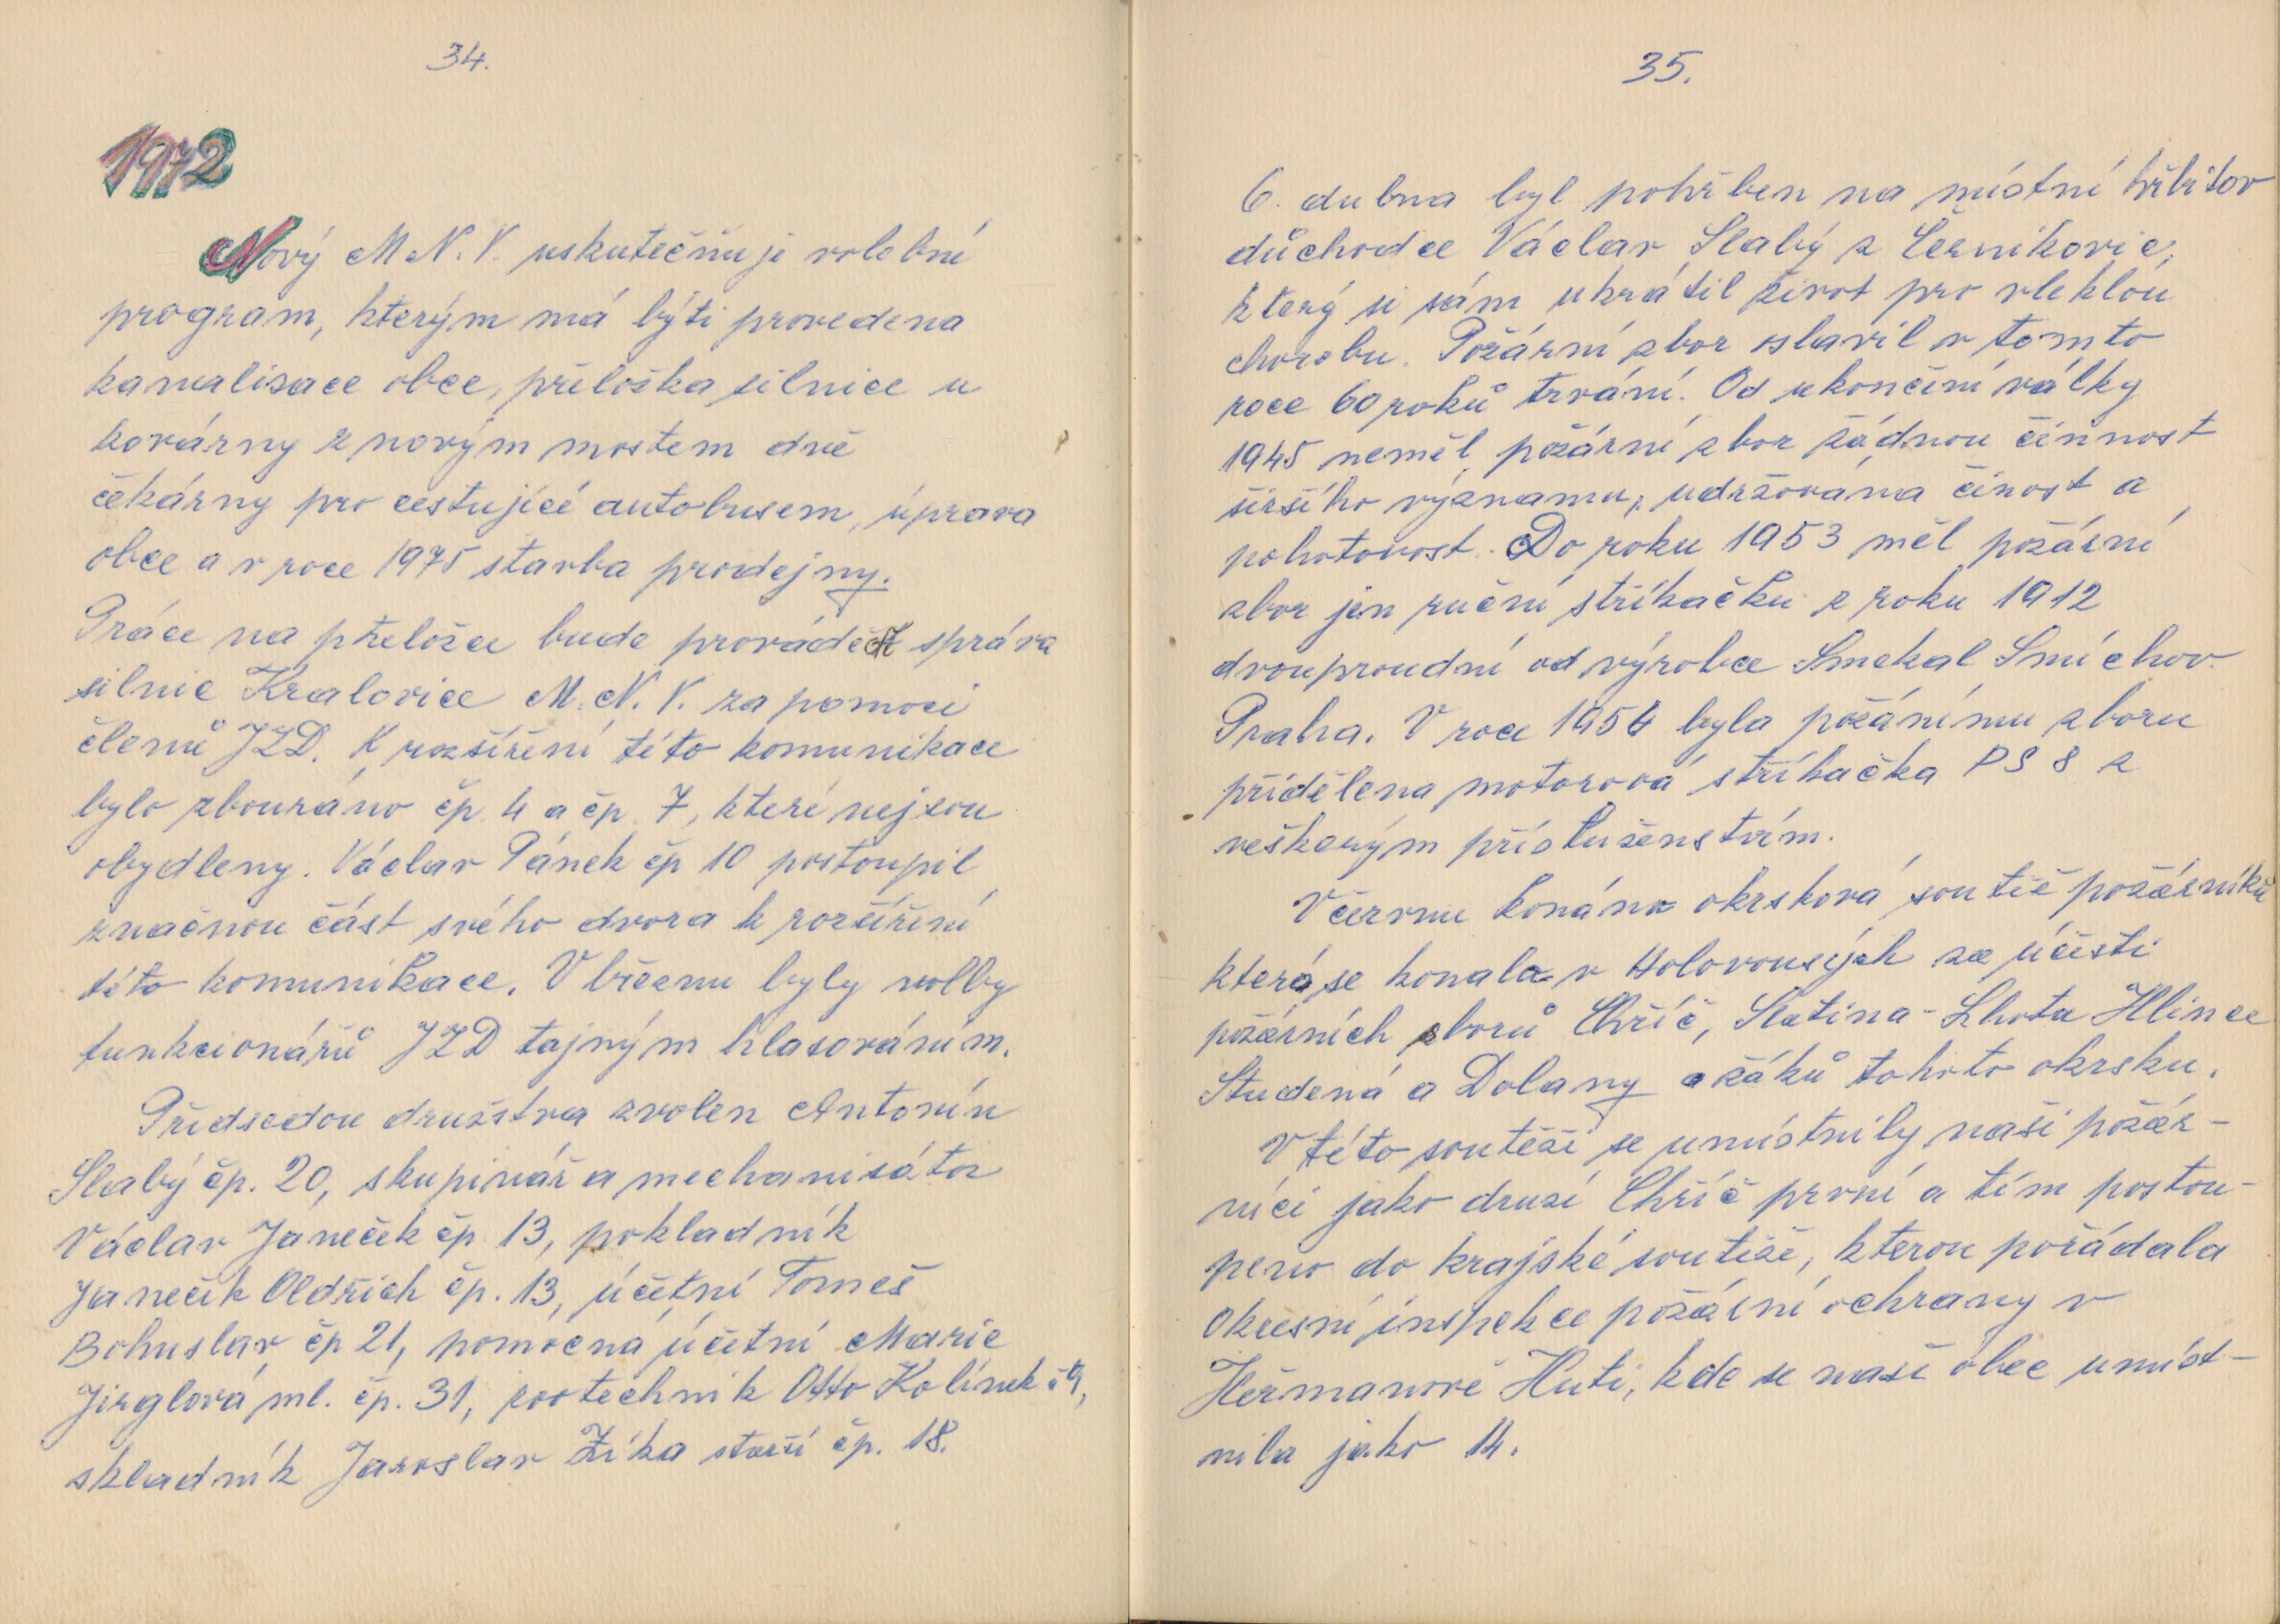 34.
1972
Nový M N. V. uskutečňuje volební
program, kterým má býti provedena
kanalisace obce, přeložka silnice u
kovárny z novým mostem dvě
čekárny pro cestující autobusem, úprava
obce a v roce 1975 stavba prodejny.
Práce na přeložce bude provádět správa
silnic Kralovice M. N. V. za pomoci
členů JZD. K rozšíření této komunikace
bylo zbouráno čp. 4 a čp. 7, které nejsou
obydleny. Václav Pánek čp 10 postoupil
značnou část svého dvora k rozšíření
této komunikace. V březnu byly volby
funkcionářů JZD tajným hlasováním.
Předsedou družstva zvolen Antonín
Slabý čp. 20, skupinář a mechanisátor
Václav Janeček čp 13, pokladník
Janeček Oldřich čp. 13, účetní Tomeš
Bohuslav čp 21, pomocná účetní Marie
Jirglová ml. čp. 31, zootechnik Otto Kolínek
skladník Jaroslav Zíka starší čp. 18.
35.
6. dubna byl pohřben na místní hřbitov
důchodce Václav Slabý z Černíkovic,
který si sám ukrátil život pro vleklou
chorobu. Požární zbor oslavil v tomto
roce 60 roků trvání. Od ukončení války
1945 neměl požární zbor žádnou činnost
širšího významu, udržována činost a
pohotovost. Do roku 1953 měl požární
zbor jen ruční stříkačku z roku 1912
dvouproudní od výrobce Smekal Smíchov
Praha. V roce 1954 byla požánímu zboru
přidělena motorová stříkačka PS 8 z
veškerým příslušenstvím.
V červnu konána okrsková soutěž požárníků
která se konala v Holovousých za účasti
požárních zborů Chříč, Slatina - Lhota Hlince
Studená a Dolany a žáků tohoto okrsku.
V této soutěži se umístnily naši požár-
níci jako druzí Chříč první a tím postou-
peno do krajské soutěže, kterou pořádala
Okresní inspekce požární ochrany v
Heřmanově Huti, kde se naše obec umíst-
nila jako 14.